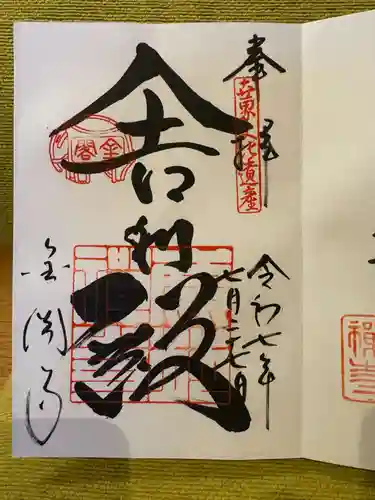 奉拝
世界文化遺産
令和七年
七月二十七日
舎利殿
金閣
金閣寺